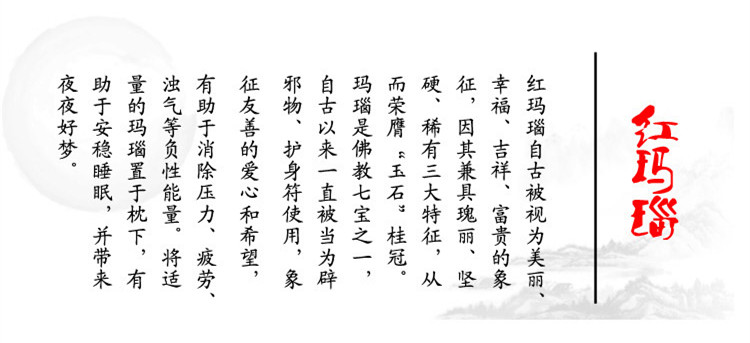 红玛瑙
红玛瑙自古被视为美丽、
幸福、吉祥、富贵的象
征，因其兼具瑰丽、坚
硬、稀有三大特征，从
而荣膺“玉石”桂冠。
玛瑙是佛教七宝之一，
自古以来一直被当为辟
邪物、护身符使用，象
征友善的爱心和希望，
有助于消除压力、疲劳、
浊气等负性能量。将适
量的玛瑙置于枕下，有
助于安稳睡眠，并带来
夜夜好梦。